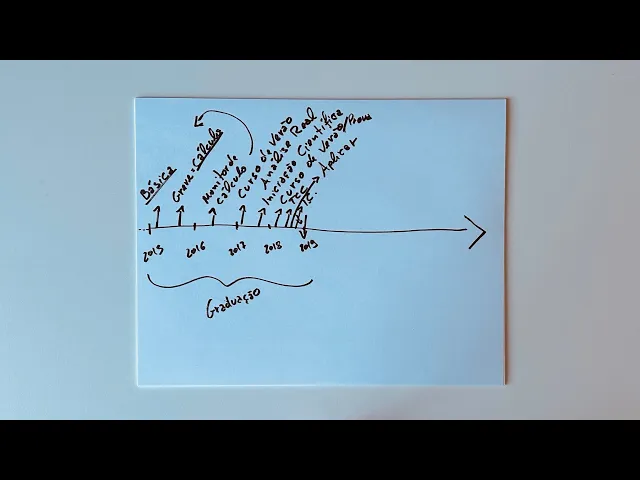 Básica
Greve + Cálculo
Monitor de
Cálculo
Curso de Verão
Análise Real
Iniciação Científica
Curso de Verão/Prova
TCC
Aplicar
2015
2016
2017
2018
2019
Graduação